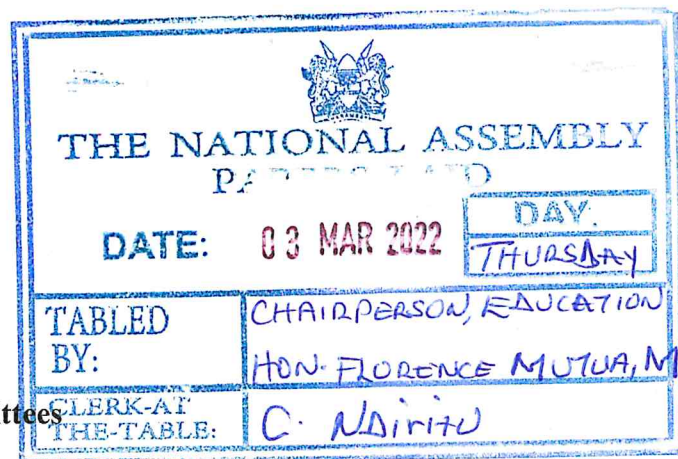 THE NATIONAL ASSEMBLY
DATE: 03 MAR 2022
DAY:
THURSDAY
TABLED BY:
CHAIRPERSON, EDUCATION
HON. FLORENCE MUTUA, M
ttees
CLERK-AT THE-TABLE:
C. Ndiritu